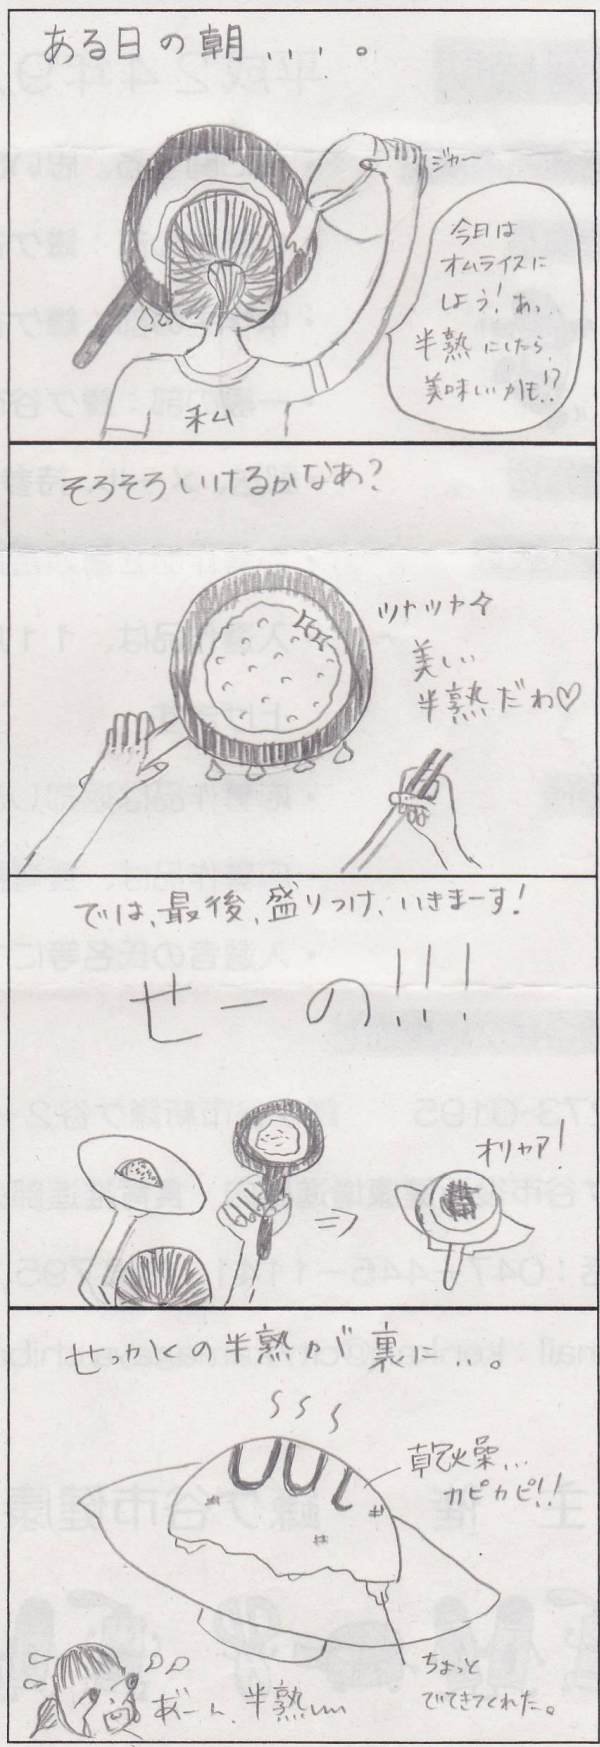 ある日の朝...。
ジャー
今日は
オムライスに
しよう!あっ..
半熟にしたら
美味しいかも!?
私
そろそろいけるかなあ?
ツヤツヤ
美しい
半熟だわ♡
では、最後、盛りつけ、いきまーす!
せーの!!!
オリャア!
せっかくの半熟が裏に...。
乾燥...
カピカピ!!
ちょっと
でてきてくれた。
あーん、半熟ぃぃ